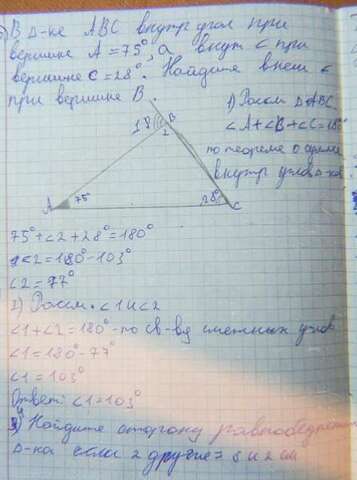 В Δ-ке АВС внутр угол при
вершине А=75°, а внут ∠ при
вершине С=28°. Найдите внеш ∠
при вершине В.
1) Рассм ΔАВС
∠А+∠В+∠С=180°
по теореме о сумме
внутр углов Δ-ка
1 В
2
А 75° 28° С
75°+∠2+28°=180°
∠2=180°-103°
∠2=77°
2) Рассм. ∠1 и ∠2
∠1+∠2=180°-по св-ву смежных углов
∠1=180°-77°
∠1=103°
Ответ: ∠1=103°
Найдите сторону равнобедрен
Δ-ка если 2 другие= и 2 см